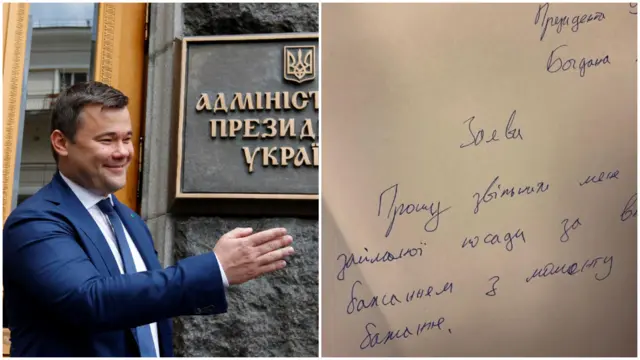 АДМІНІСТ
ПРЕЗИД
УКРАЇ
Президента
Богдана
Заява
Прошу звільнити мене
займаної посади за в
бажанням з моменту
бажання.